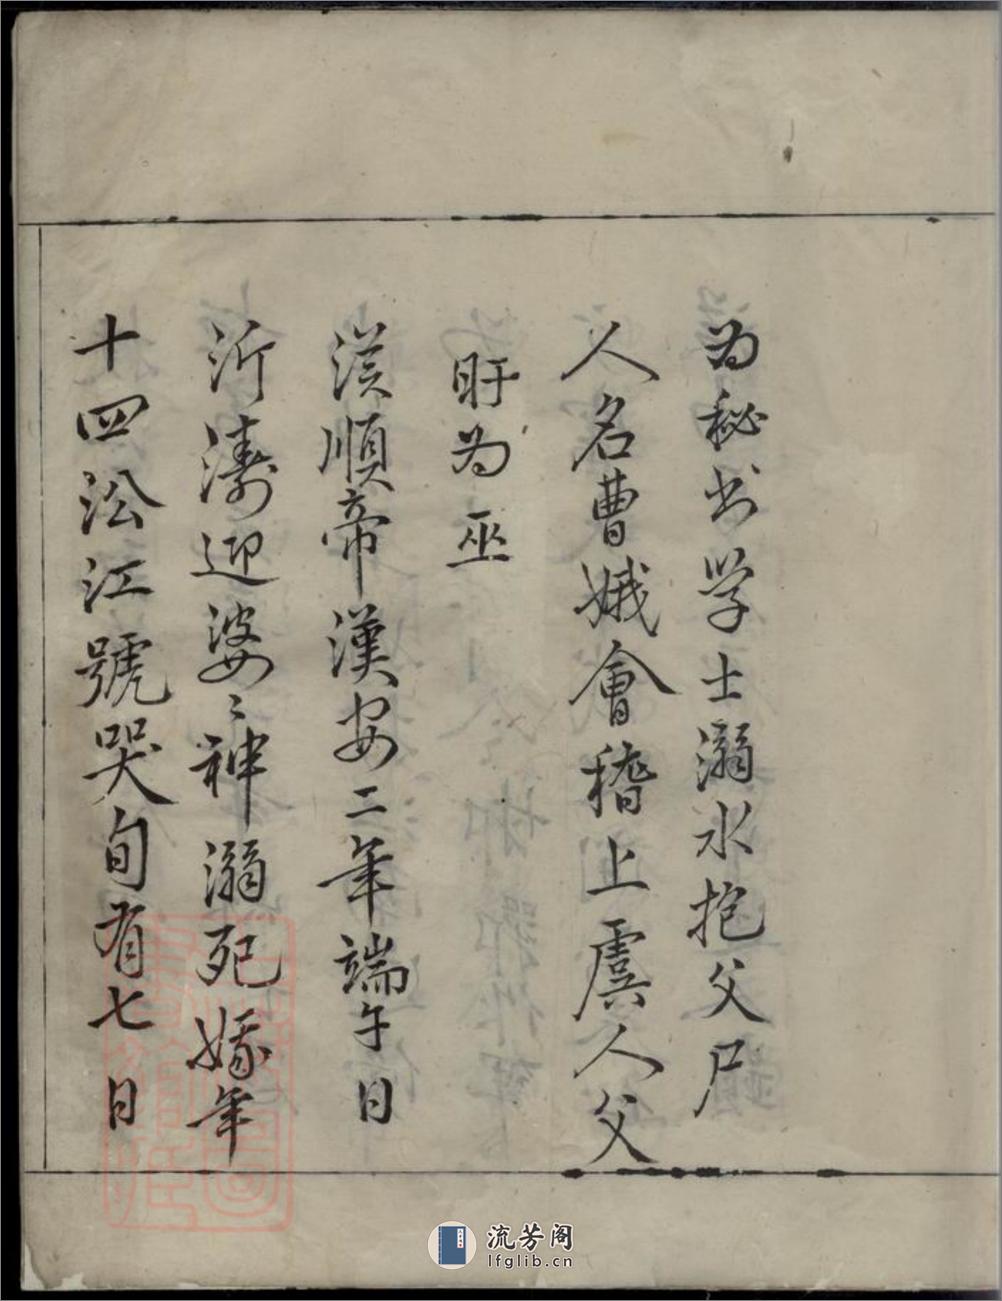 为秘书学士溺水抱父尸
人名曹娥會稽上虞人父
盱为巫
漢順帝漢安二年端午日
沂濤迎婆〻神溺死娥年
十四沿江號哭旬有七日
流芳阁
lfglib.cn